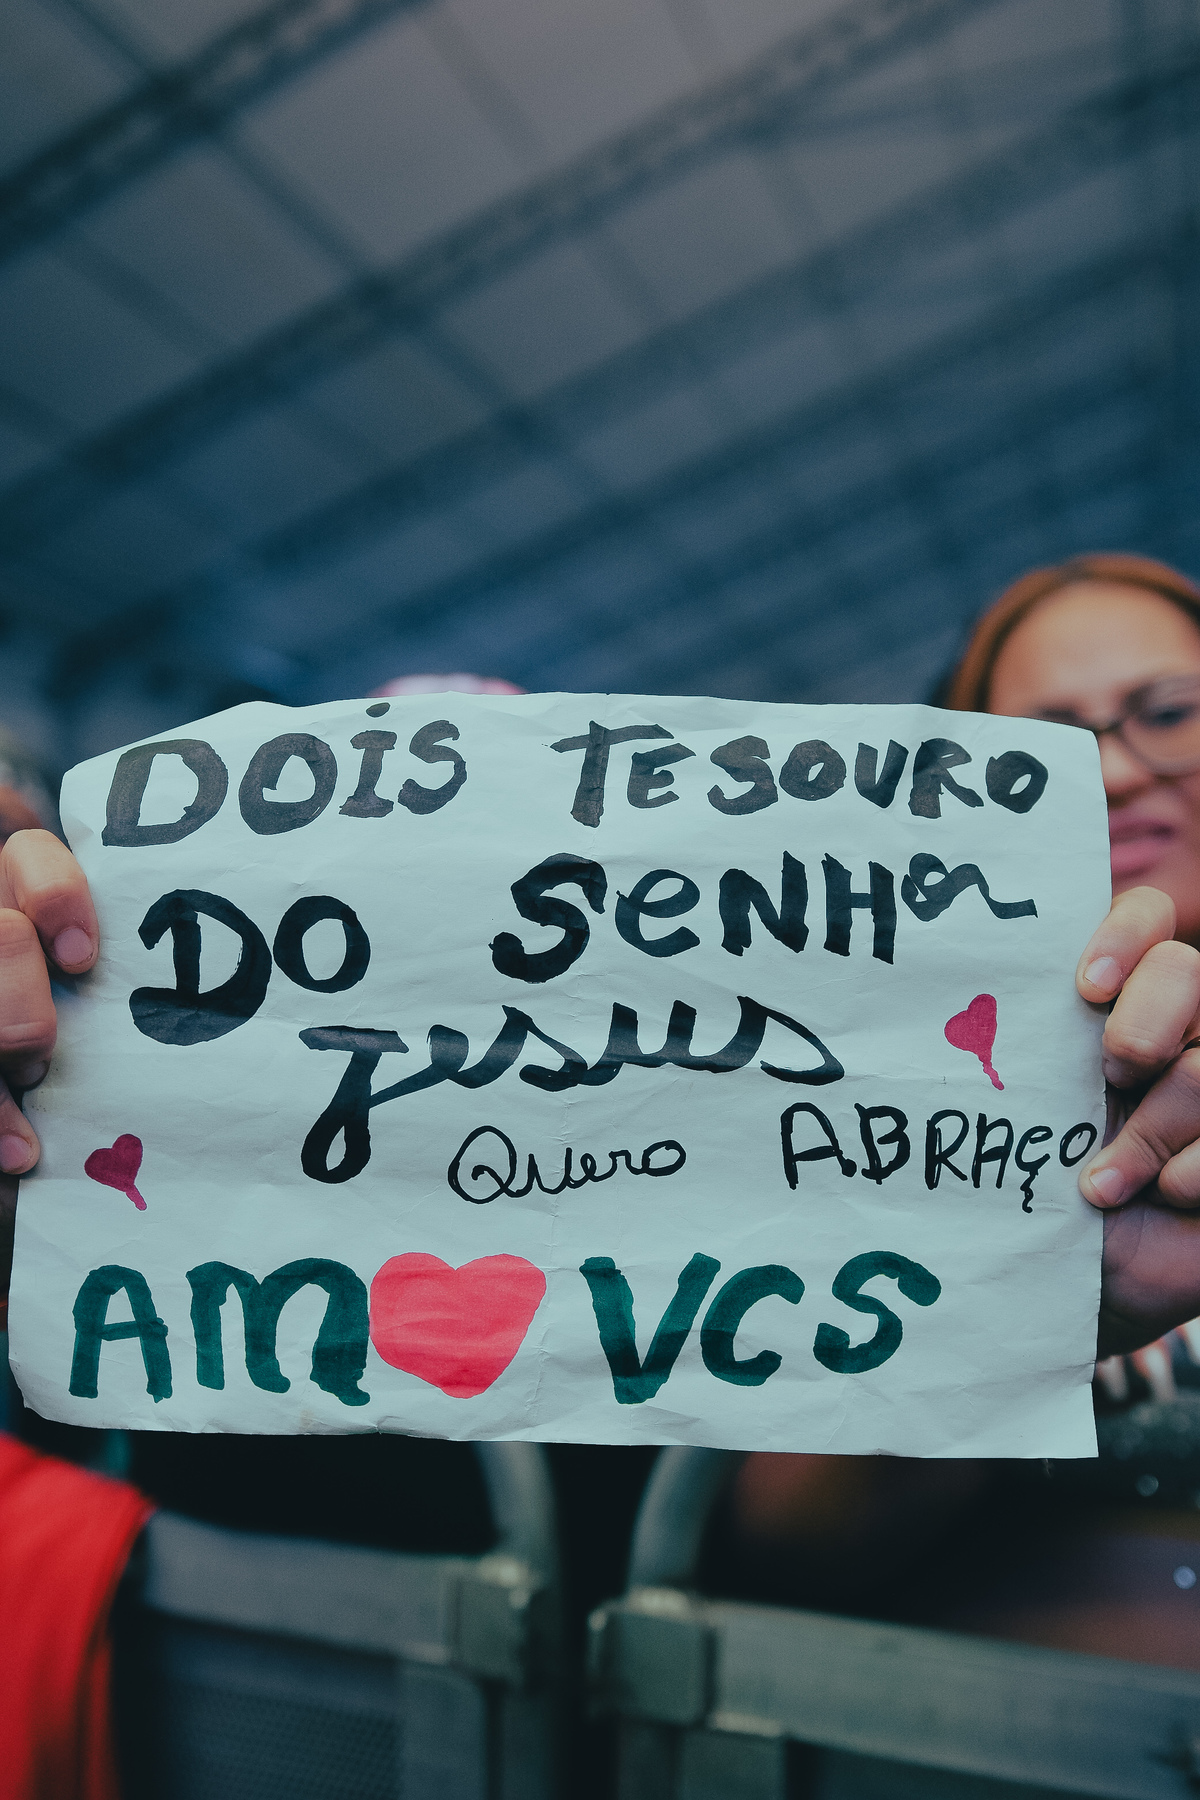 DOiS TESOURO
DO SeNHor
Jesus
Quero ABRAçO
AM❤VCS